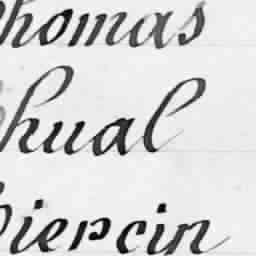 homas
hual
iercin